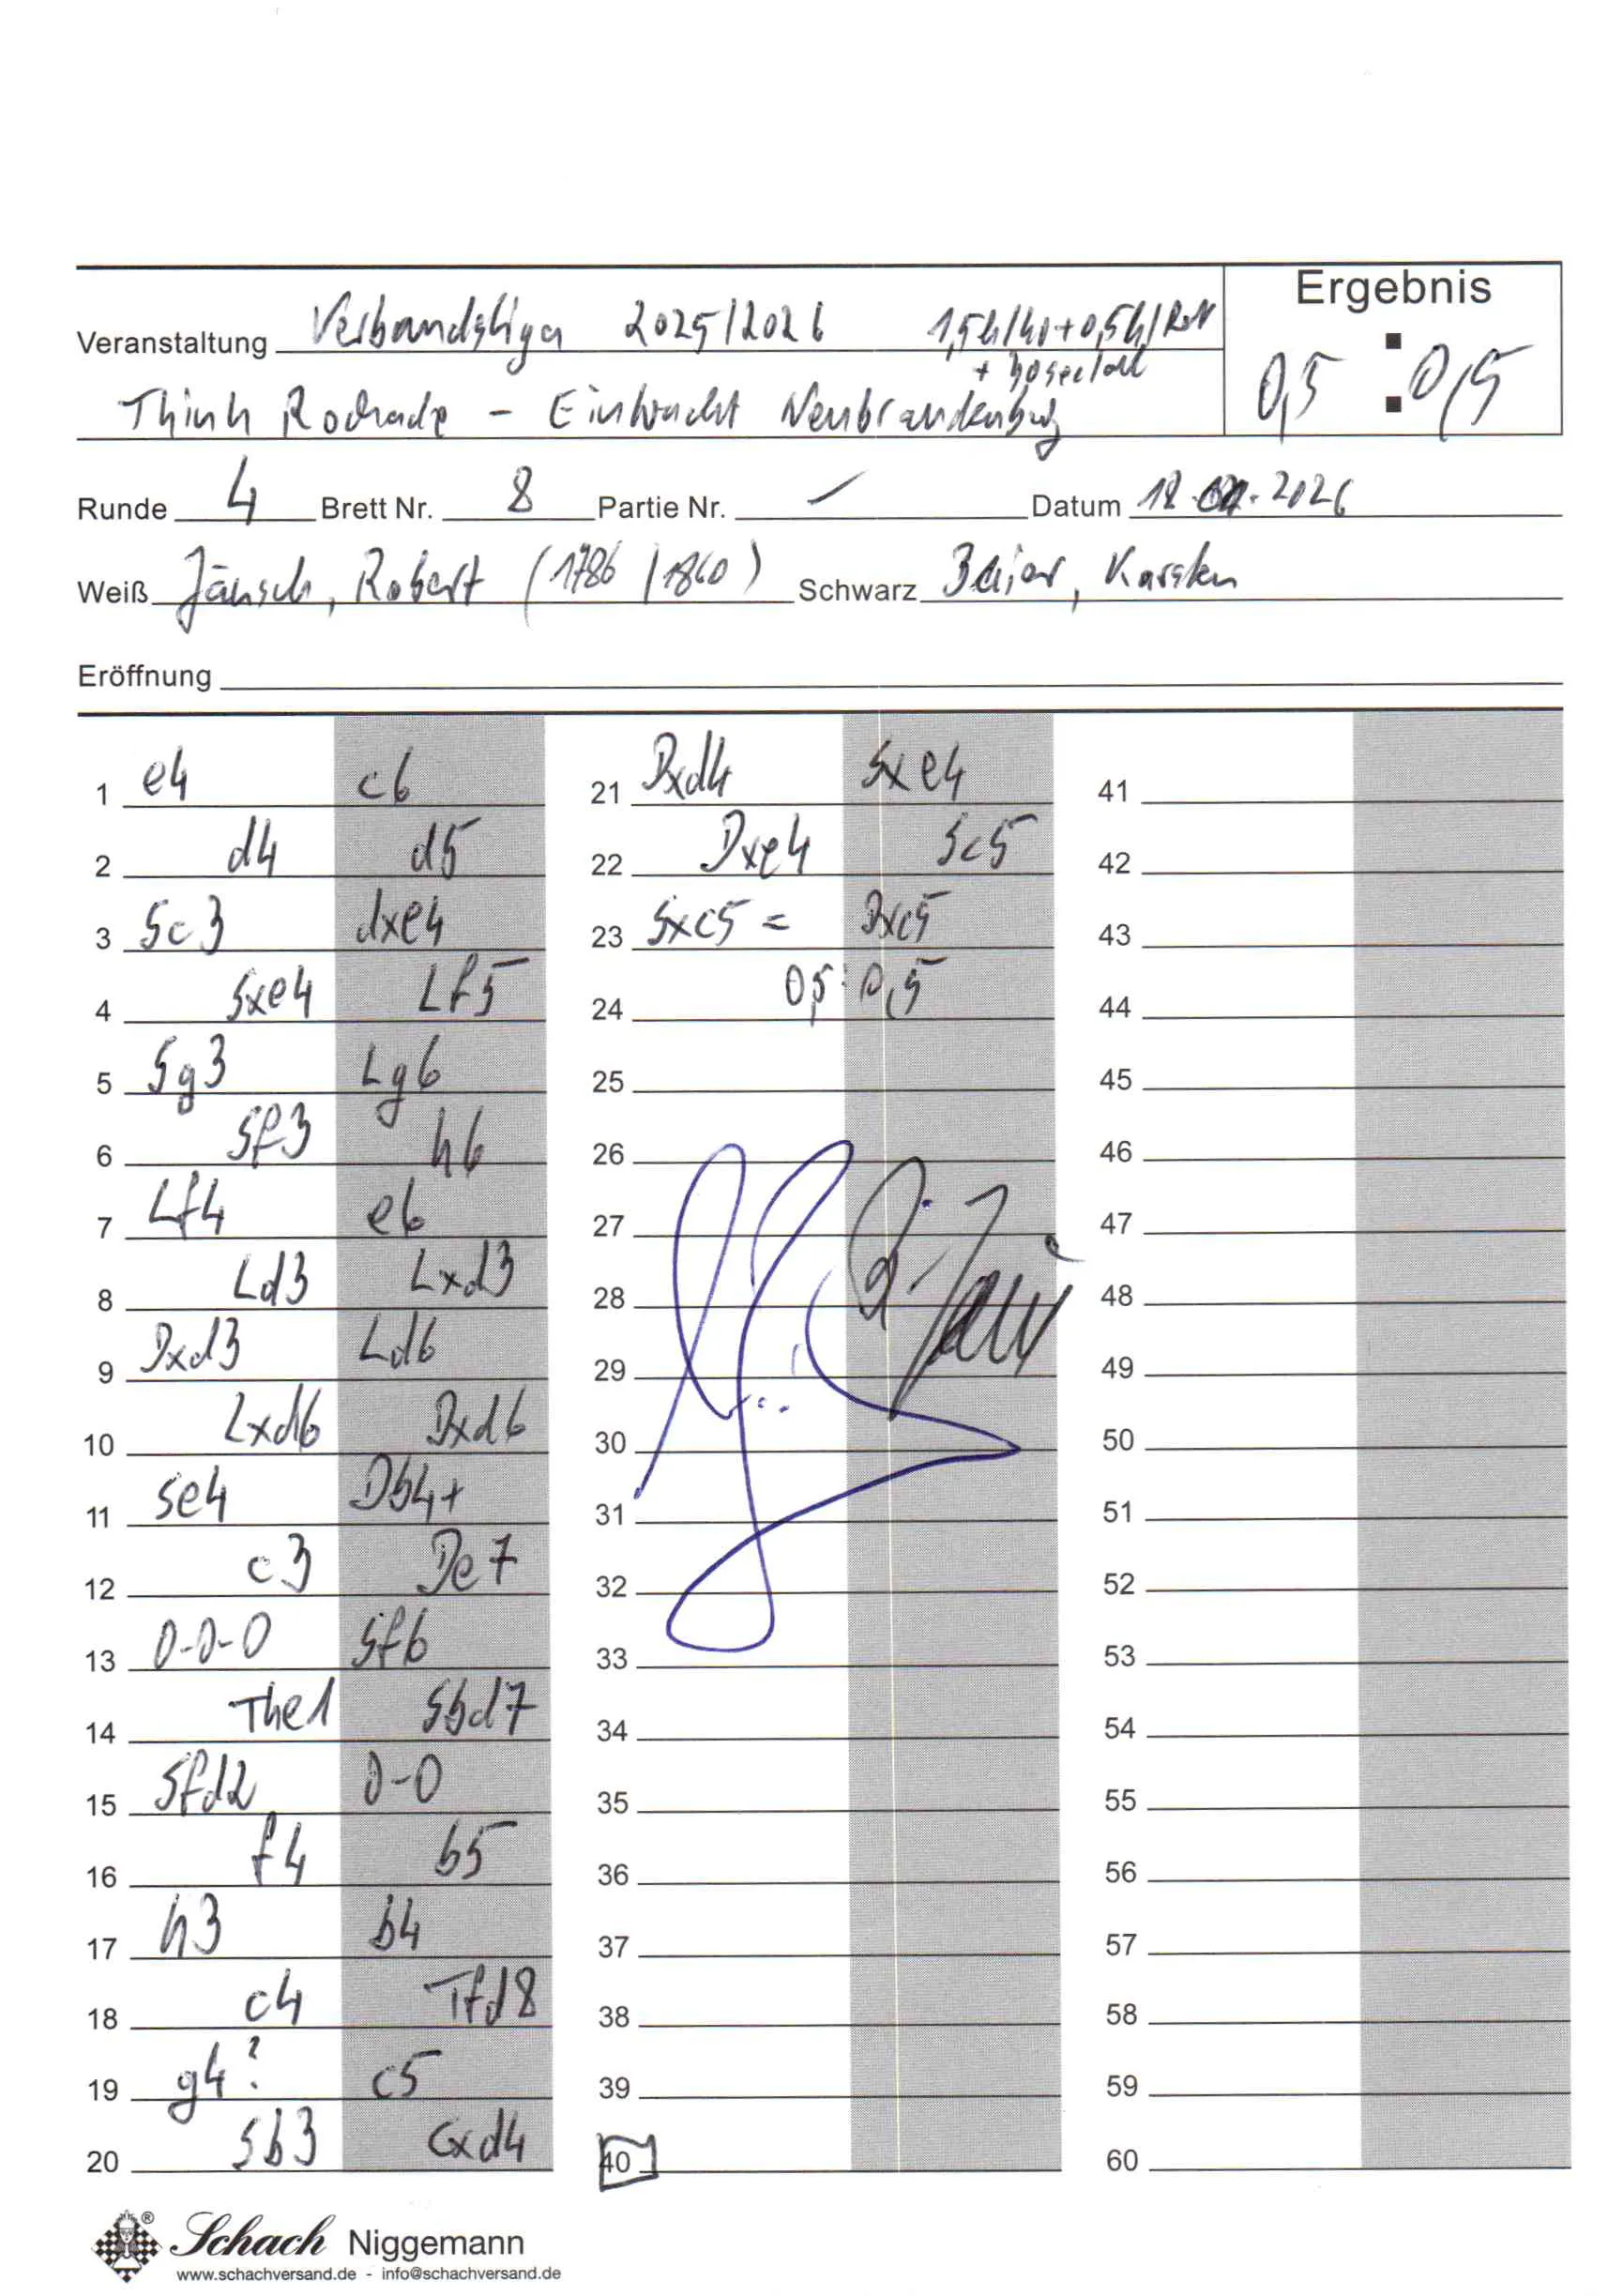 Ergebnis
Veranstaltung Verbandsliga 2025/2026 1,5h/40+0,5h/Rest
+ 30sec/
0,5 : 0,5
Think Rochade - Eintracht Neubrandenburg
Runde 4 Brett Nr. 8 Partie Nr. / Datum 18. 2026
Weiß Jänsch, Robert (1786 /1860) Schwarz Karsten
Eröffnung
1 e4 c6
2 d4 d5
3 Sc3 dxe4
4 Sxe4 Lf5
5 Sg3 Lg6
6 Sf3 h6
7 Lf4 e6
8 Ld3 Lxd3
9 Dxd3 Ld6
10 Lxd6 Dxd6
11 Se4 Db4+
12 c3 De7
13 0-0-0 Sf6
14 The1 Sbd7
15 Sfd2 0-0
16 f4 b5
17 h3 b4
18 c4 Tfd8
19 g4? c5
20 Sb3 cxd4
21 Dxd4 Sxe4
22 Dxe4 Sc5
23 Sxc5 = Dxc5
24 0,5 : 0,5
25
26
27
28
29
30
31
32
33
34
35
36
37
38
39
40
41
42
43
44
45
46
47
48
49
50
51
52
53
54
55
56
57
58
59
60
® Schach Niggemann
www.schachversand.de - info@schachversand.de